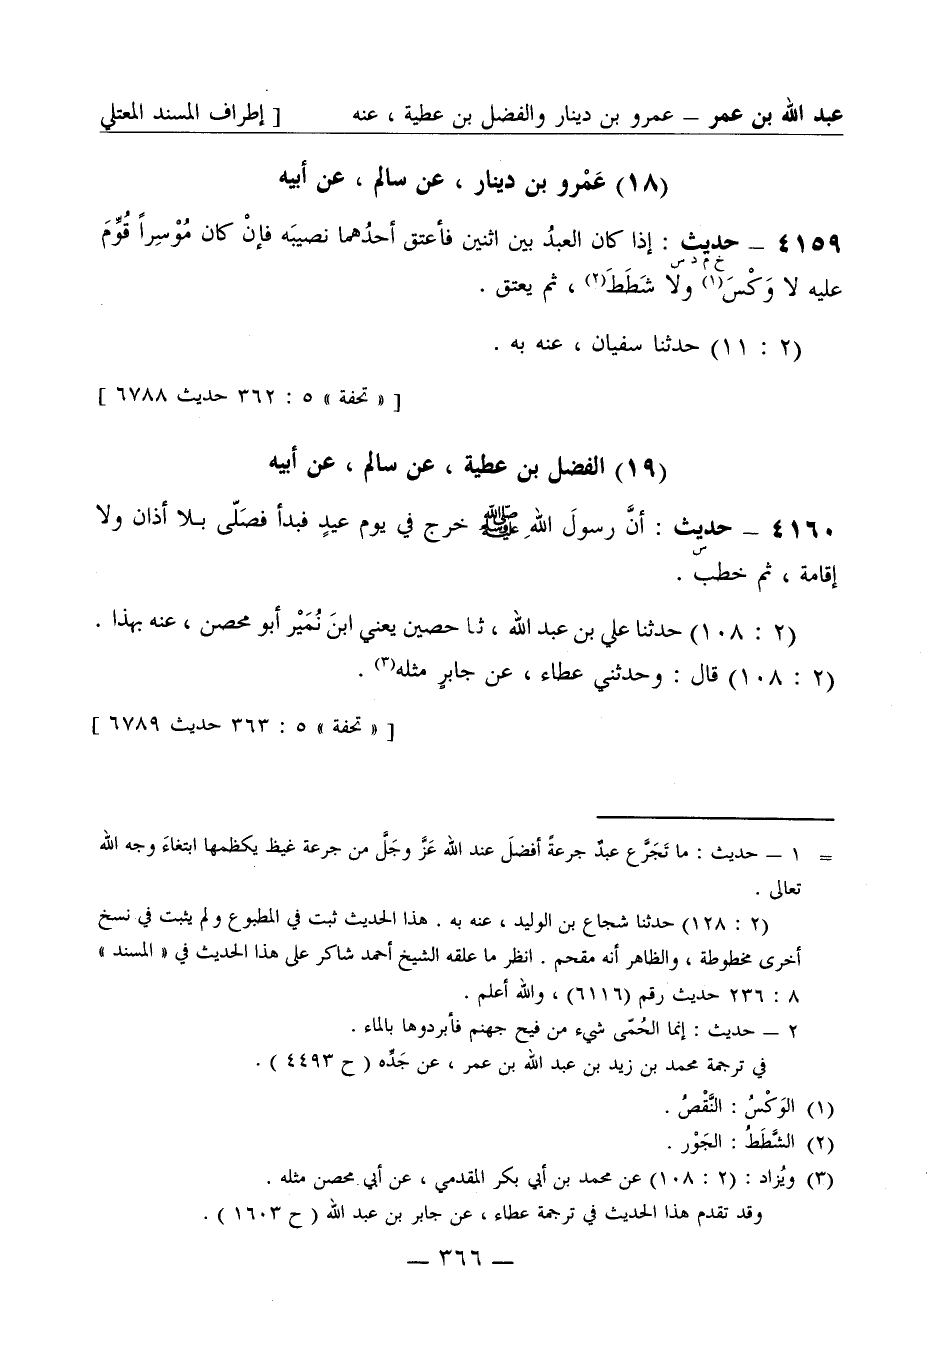 عبد الله بن عمر – عمرو بن دينار والفضل بن عطية ، عنه [ إطراف المسند المعتلي
(١٨) عَمْرو بن دينار ، عن سالم ، عن أبيه
٤١٥٩ – حديث : إذا كان العبدُ بين اثنين فأعتق أحدُهما نصيبَه فإنْ كان مُوْسِراً قُوِّمَ
خ م د س
عليه لا وَكْسَ(١) ولا شَطَطَ(٢) ، ثم يعتق .
(٢ : ١١) حدثنا سفيان ، عنه به .
[ « تحفة » ٥ : ٣٦٢ حديث ٦٧٨٨ ]
(١٩) الفضل بن عطية ، عن سالم ، عن أبيه
٤١٦٠ – حديث : أنَّ رسولَ اللهِ ﷺ خرج في يوم عيدٍ فبدأ فصَلّى بلا أذان ولا
س
إقامة ، ثم خطب .
(٢ : ١٠٨) حدثنا علي بن عبد الله ، ثا حصين يعني ابنَ نُمَيْر أبو محصن ، عنه بهذا .
(٢ : ١٠٨) قال : وحدثني عطاء ، عن جابرٍ مثله(٣) .
[ « تحفة » ٥ : ٣٦٣ حديث ٦٧٨٩ ]
= ١ – حديث : ما تَجَرَّع عبدٌ جرعةً أفضلَ عند الله عَزَّ وجَلَّ من جرعة غيظ يكظمها ابتغاءَ وجه الله
تعالى .
(٢ : ١٢٨) حدثنا شجاع بن الوليد ، عنه به . هذا الحديث ثبت في المطبوع ولم يثبت في نسخ
أخرى مخطوطة ، والظاهر أنه مقحم . انظر ما علقه الشيخ أحمد شاكر على هذا الحديث في « المسند »
٨ : ٢٣٦ حديث رقم (٦١١٦) ، والله أعلم .
٢ – حديث : إنما الحُمّى شيء من فيح جهنم فأبردوها بالماء .
في ترجمة محمد بن زيد بن عبد الله بن عمر ، عن جَدِّه ( ح ٤٤٩٣ ) .
(١) الوَكْسُ : النَّقْصُ .
(٢) الشَّطَطُ : الجَوْر .
(٣) ويُزاد : (٢ : ١٠٨) عن محمد بن أبي بكر المقدمي ، عن أبي محصن مثله .
وقد تقدم هذا الحديث في ترجمة عطاء ، عن جابر بن عبد الله ( ح ١٦٠٣ ) .
– ٣٦٦ –